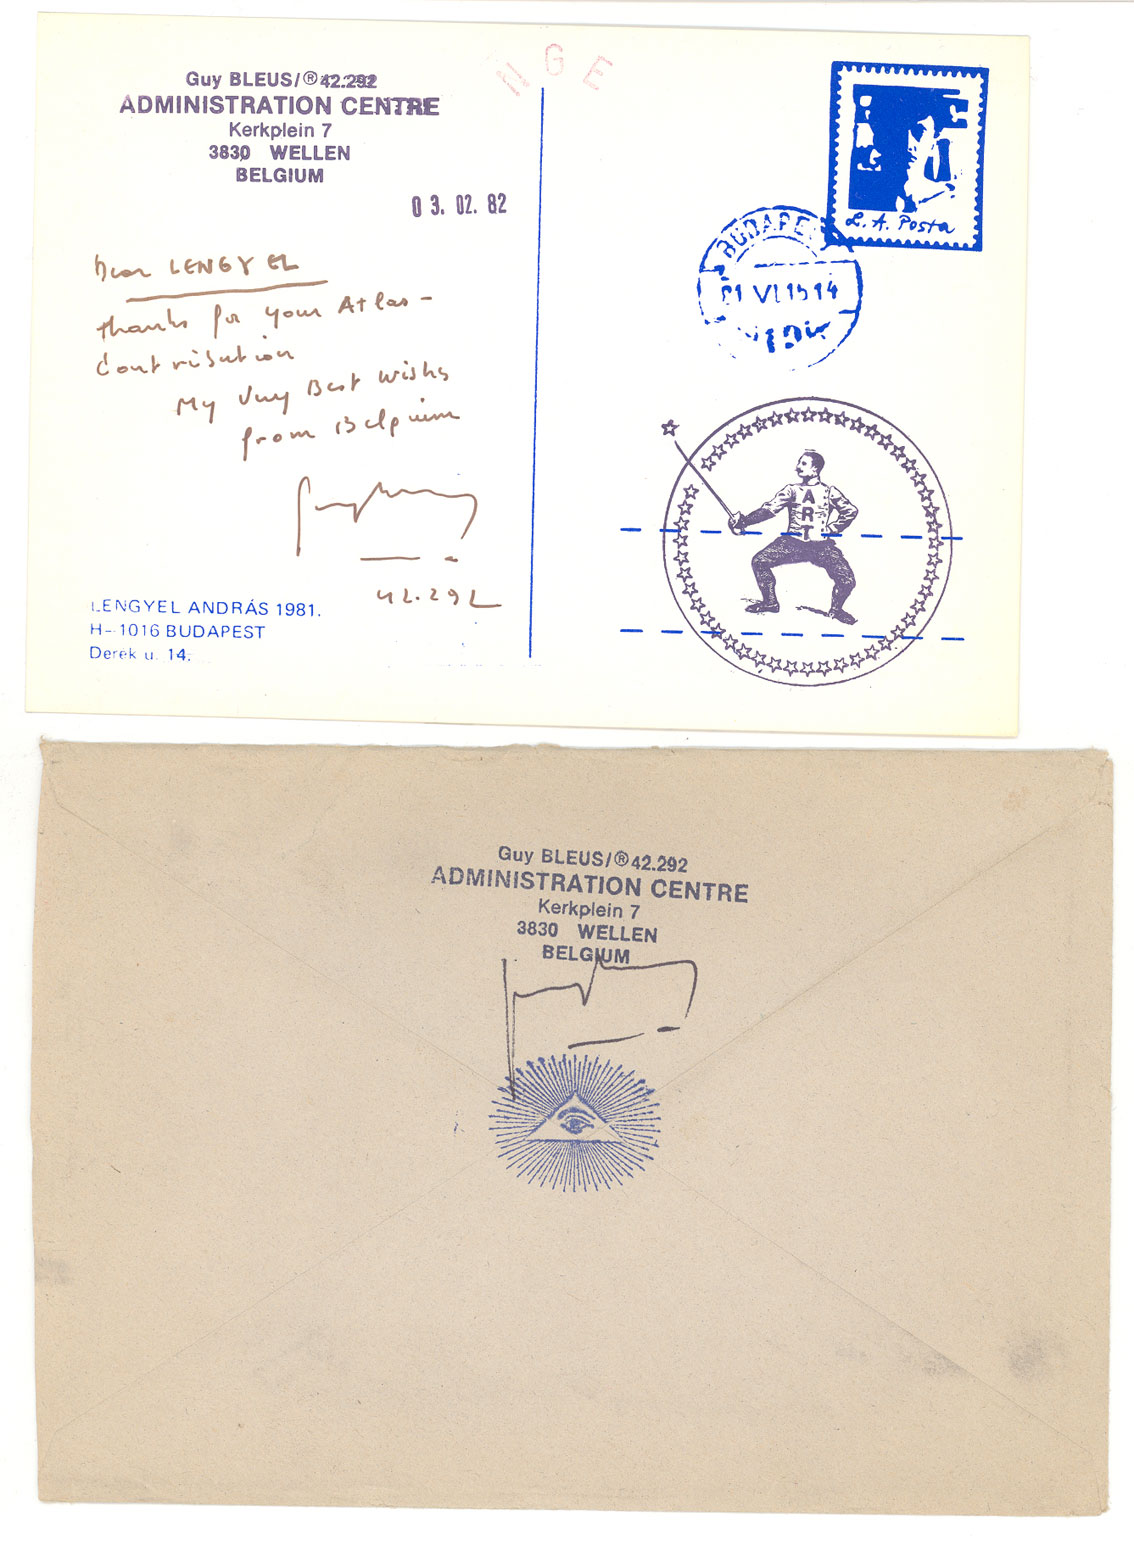 Guy BLEUS/® 42.292
ADMINISTRATION CENTRE
Kerkplein 7
3830 WELLEN
BELGIUM
03. 02. 82
Dear LENGYEL
thanks for your Atlas-
Contribution
My Very Best Wishes
from Belgium
42.292
LENGYEL ANDRÁS 1981.
H-1016 BUDAPEST
Derék u. 14.
NGE
L. A. Posta
BUDAPE
81 VI 15 14
ART
Guy BLEUS/® 42.292
ADMINISTRATION CENTRE
Kerkplein 7
3830 WELLEN
BELGIUM